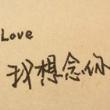 Love
我想念你